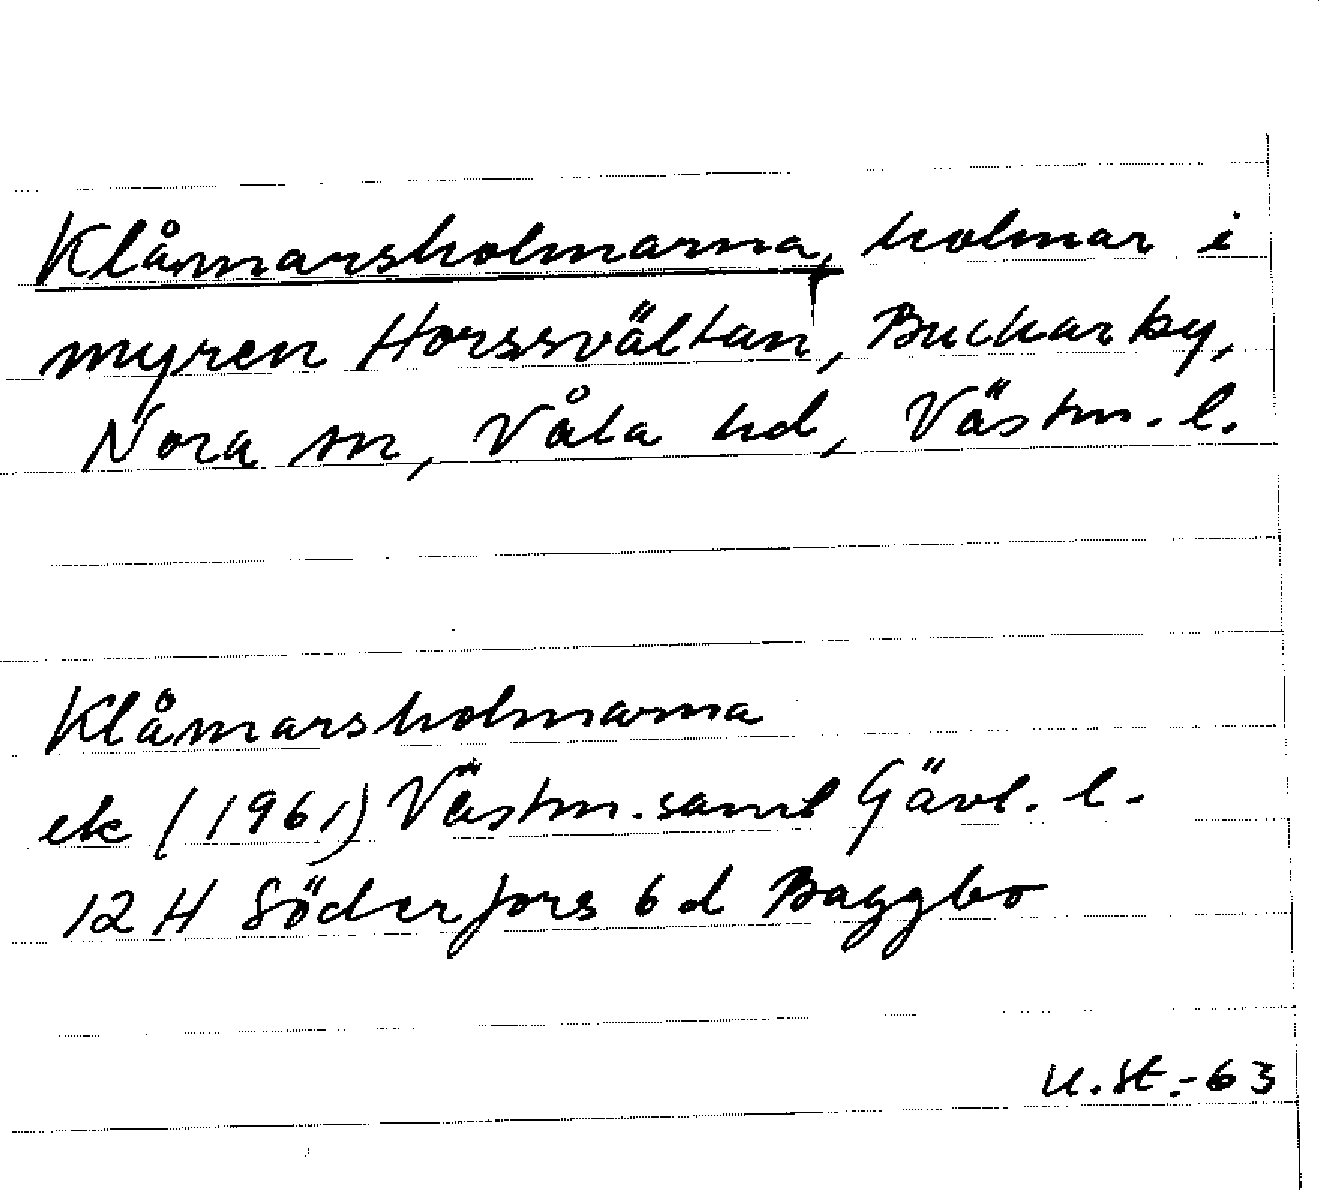 Klåmarsholmarna, holmar i
myren Horssvältan, Buckarby,
Nora sn, Våla hd, Västm. l.
Klåmarsholmarna
ek (1961) Västm. samt Gävl. l.
12 H Söderfors 6 d Baggbo
U. St. -63